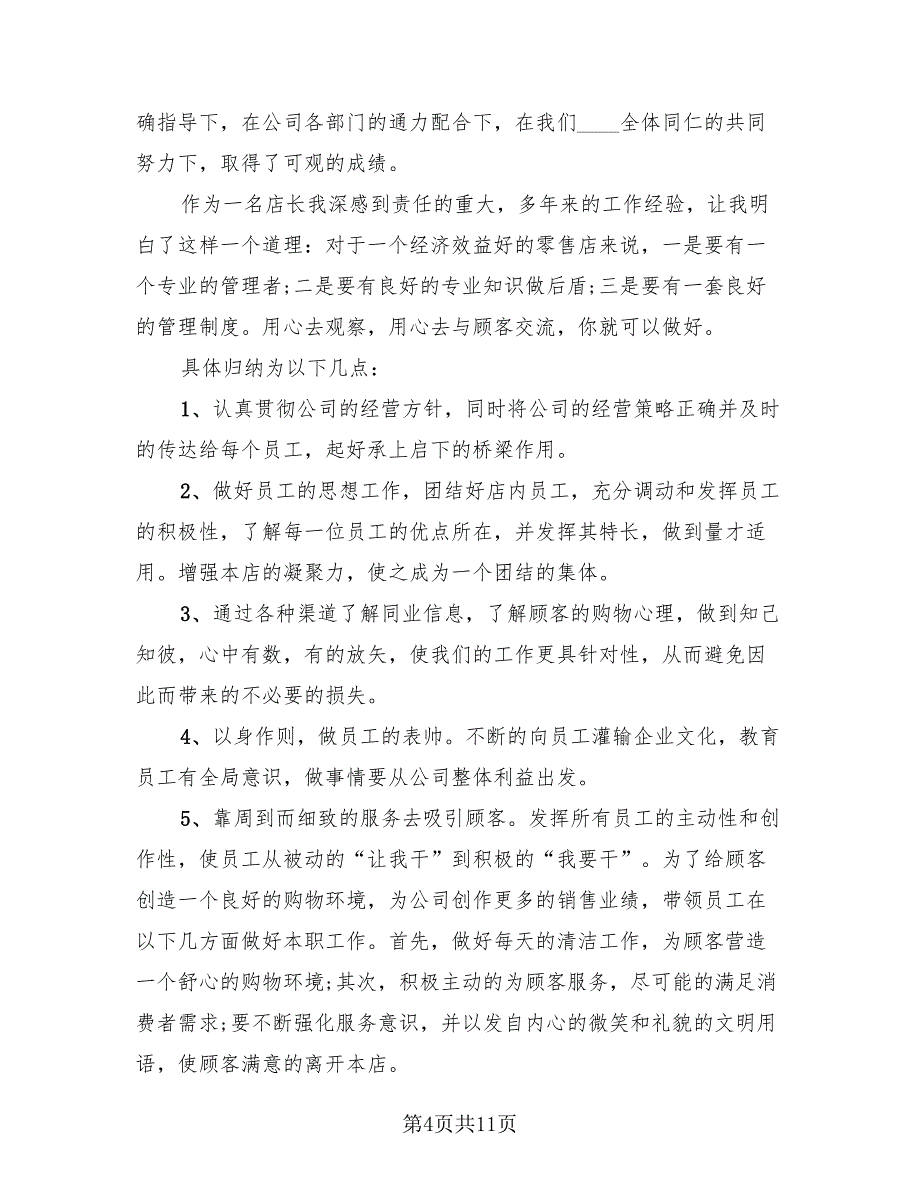 确指导下，在公司各部门的通力配合下，在我们____全体同仁的共同
努力下，取得了可观的成绩。
作为一名店长我深感到责任的重大，多年来的工作经验，让我明
白了这样一个道理：对于一个经济效益好的零售店来说，一是要有一
个专业的管理者;二是要有良好的专业知识做后盾;三是要有一套良好
的管理制度。用心去观察，用心去与顾客交流，你就可以做好。
具体归纳为以下几点：
1、认真贯彻公司的经营方针，同时将公司的经营策略正确并及时
的传达给每个员工，起好承上启下的桥梁作用。
2、做好员工的思想工作，团结好店内员工，充分调动和发挥员工
的积极性，了解每一位员工的优点所在，并发挥其特长，做到量才适
用。增强本店的凝聚力，使之成为一个团结的集体。
3、通过各种渠道了解同业信息，了解顾客的购物心理，做到知己
知彼，心中有数，有的放矢，使我们的工作更具针对性，从而避免因
此而带来的不必要的损失。
4、以身作则，做员工的表帅。不断的向员工灌输企业文化，教育
员工有全局意识，做事情要从公司整体利益出发。
5、靠周到而细致的服务去吸引顾客。发挥所有员工的主动性和创
作性，使员工从被动的“让我干”到积极的“我要干”。为了给顾客
创造一个良好的购物环境，为公司创作更多的销售业绩，带领员工在
以下几方面做好本职工作。首先，做好每天的清洁工作，为顾客营造
一个舒心的购物环境;其次，积极主动的为顾客服务，尽可能的满足消
费者需求;要不断强化服务意识，并以发自内心的微笑和礼貌的文明用
语，使顾客满意的离开本店。
第4页共11页